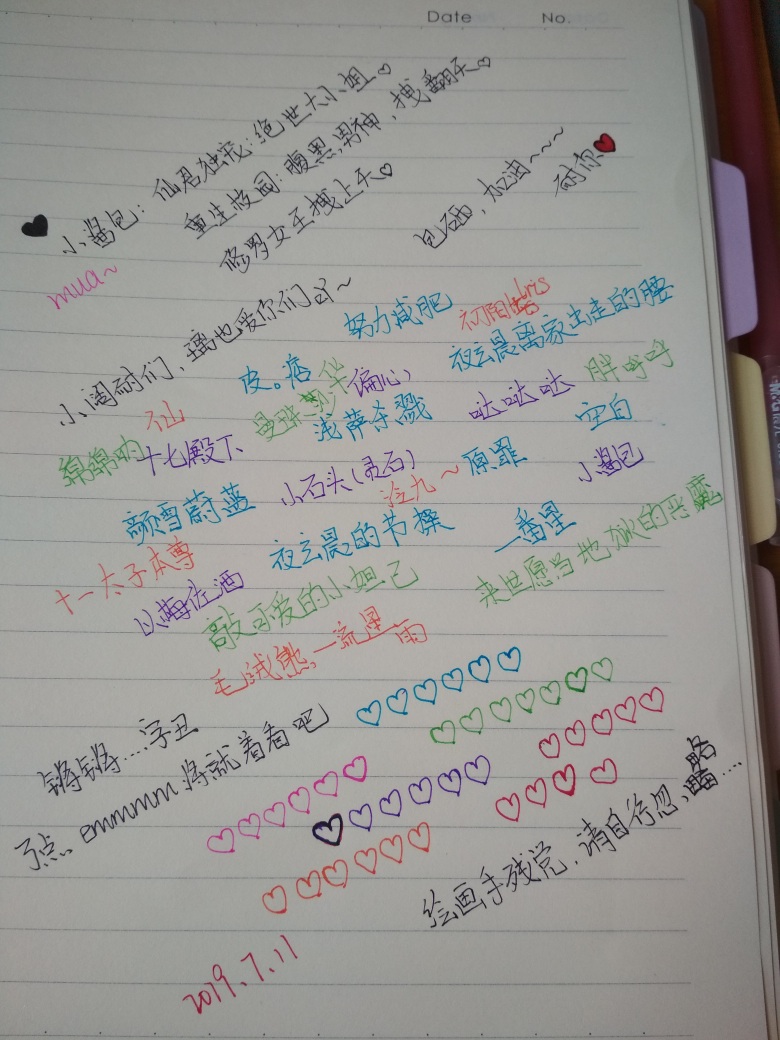 Date No.
小酱包：仙君独宠：绝世大小姐♡
重生校园：腹黑男神，拽翻天♡
修男女王拽上天♡
包酒，加油~~~
耐你♥
mua~
小阁耐们，璃也爱你们吖~
努力减肥
初阳iris
夜玄晨离家出走的腰
皮。痞
偏心）
胖呼呼
绵绵呐
不山
十七殿下
浅萨杀戮
哒哒哒
空白
颜雪蔚蓝
小石头（灵石）
泠九~
原罪
小酱包
十一太子本尊
夜玄晨的书搡
一番星
以梅佐酒
敲可爱的小妲己
来世愿当地狱的恶魔
毛绒熊
一流星雨
锵锵…字丑
了点。emmmm将就着看吧
绘画手残党，请自行忽略…
2019.7.11